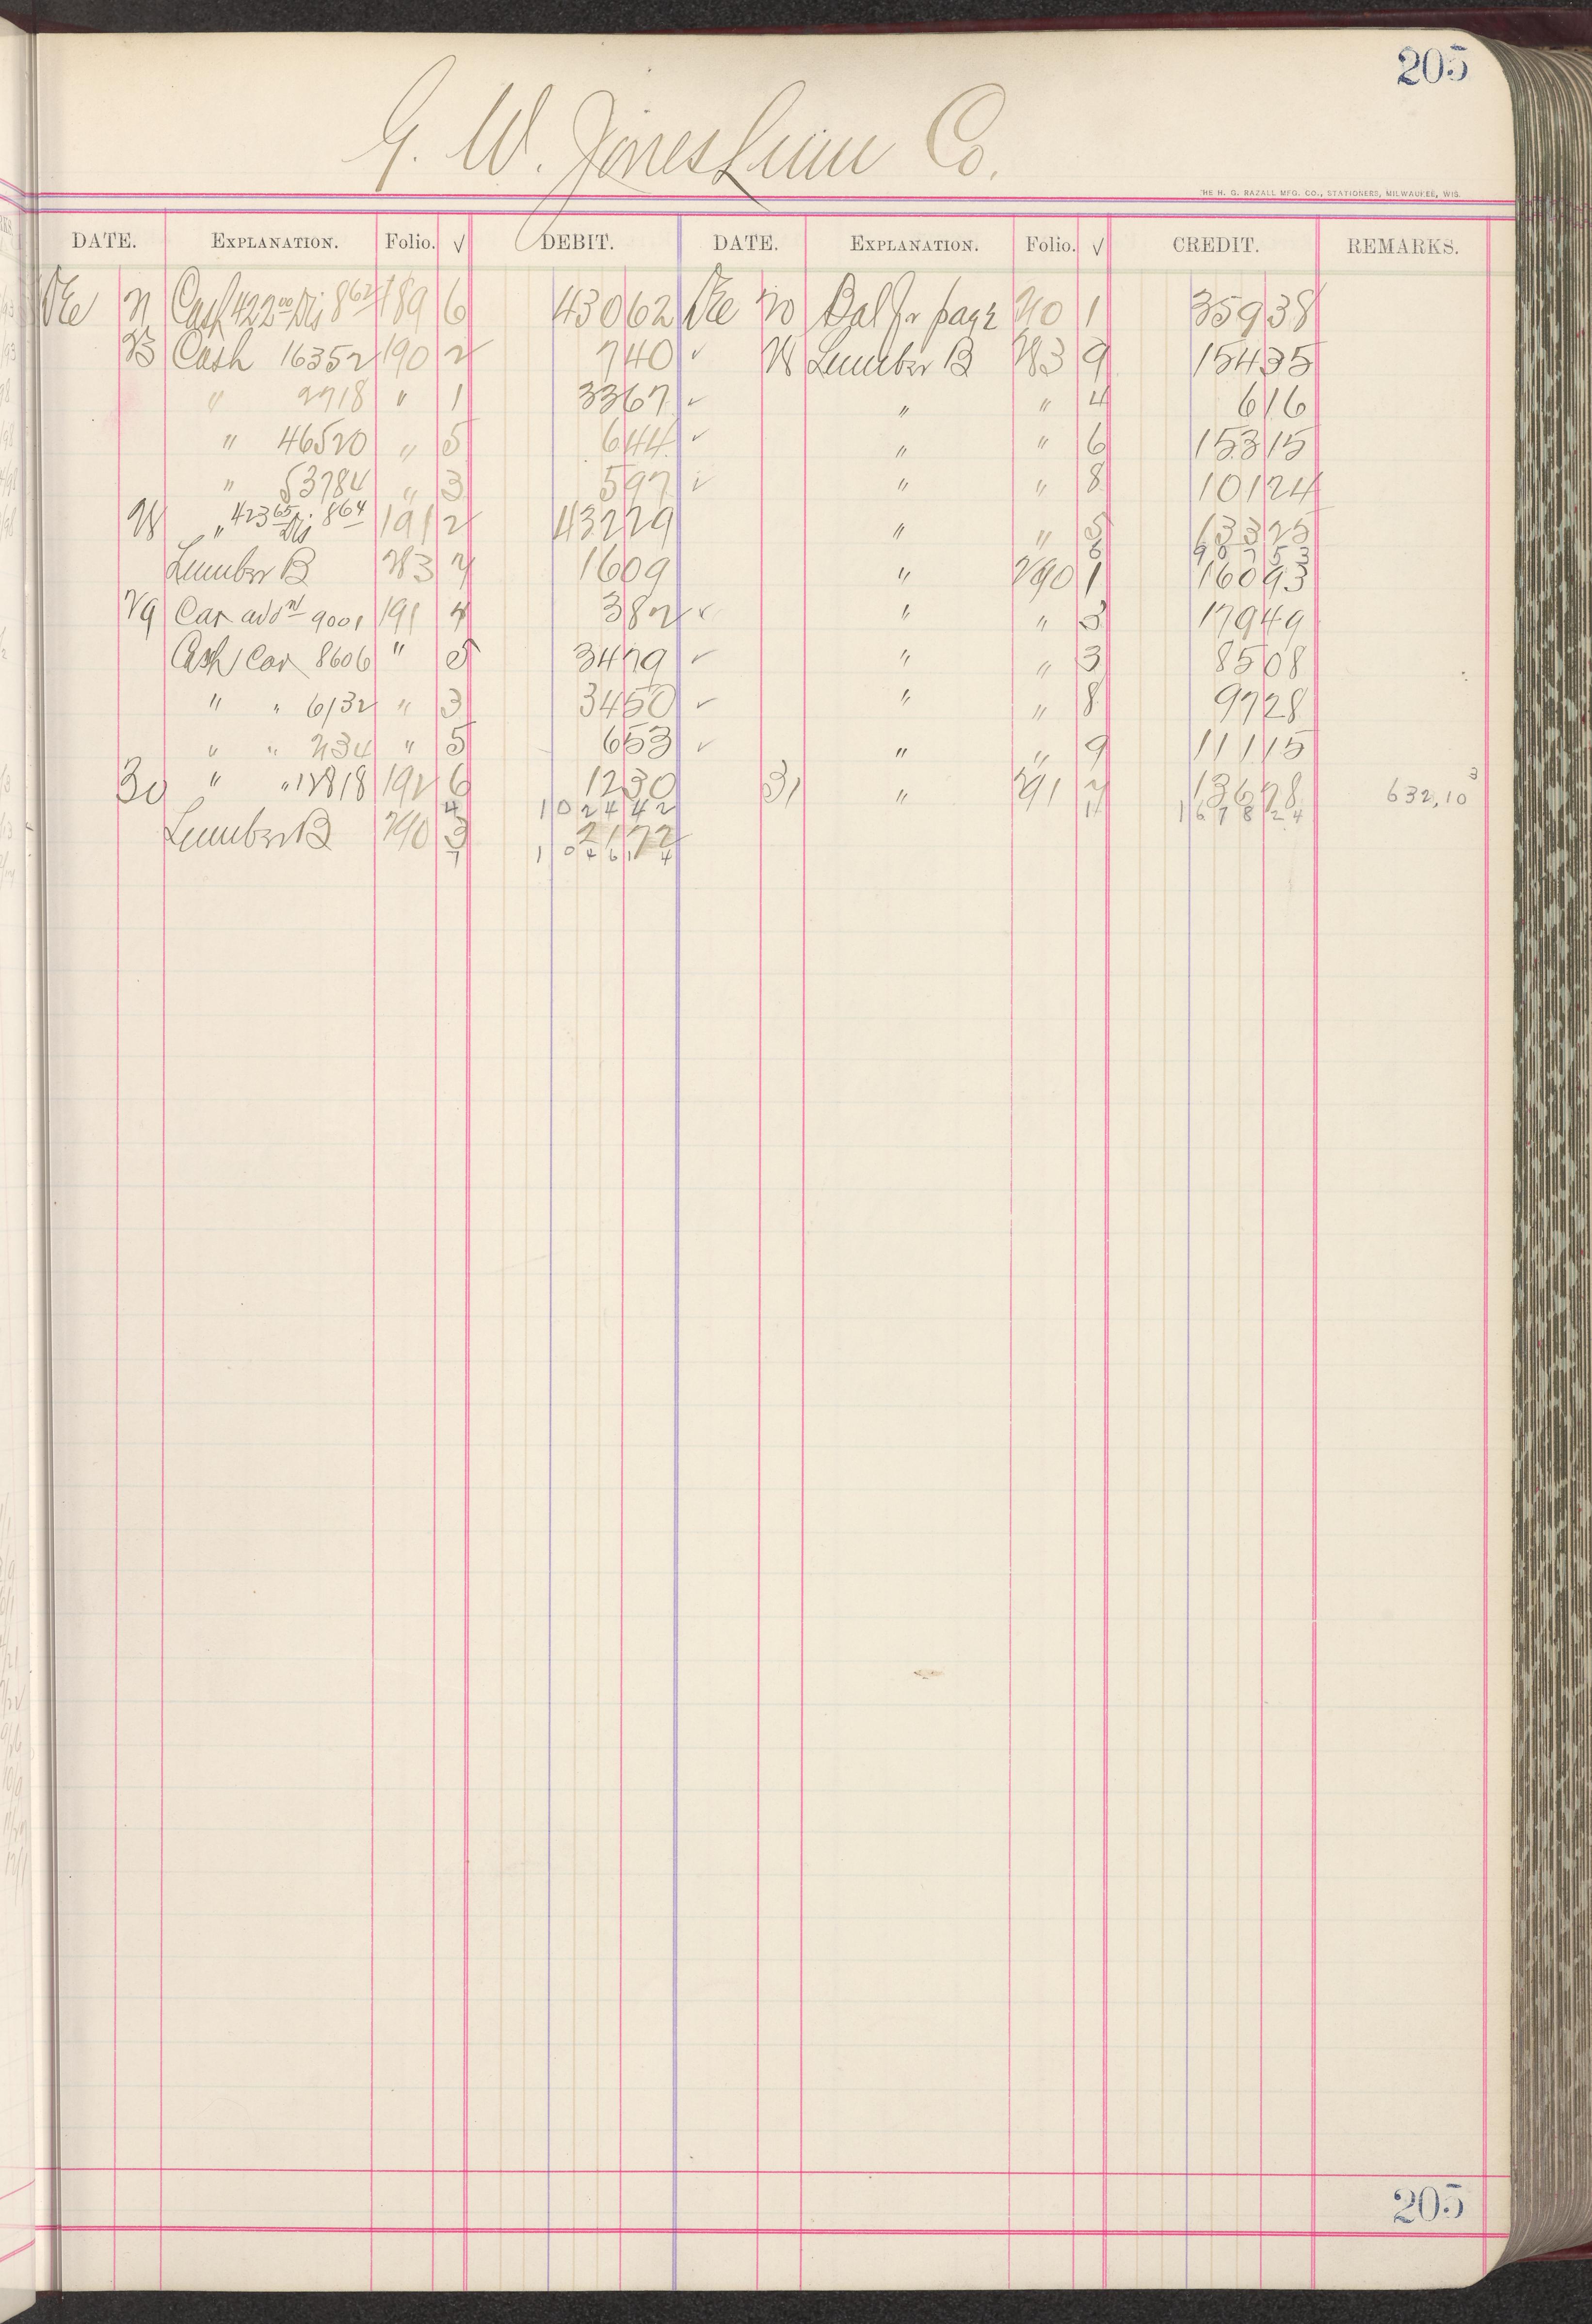 205
G. W. Jones Lum Co.
THE H. G. RAZALL MFG. CO., STATIONERS, MILWAUKEE, WIS.
DATE. EXPLANATION. Folio. √ DEBIT. DATE. EXPLANATION. Folio. √ CREDIT. REMARKS.
Dec 21 Cash 422 00 Dis 8 62 189 6 430 62 Dec 20 Bal fr page 210 1 359 38
23 Cash 16352 190 2 7 40 ✓ 28 Lumber B 283 9 154 35
" 2718 " 1 33 67 ✓ " " 4 6 16
" 46520 " 5 6 44 ✓ " " 6 153 15
" 53784 " 3 5 97 ✓ " " 8 101 24
28 " 423 65 Dis 8 64 191 2 432 29 " " 5 133 25
6 907 53
Lumber B 283 7 16 09 " 290 1 160 93
29 Car add 9001 191 4 3 82 ✓ " " 3 179 49
Cash Car 8606 " 5 34 79 ✓ " " 3 85 08
" " 6132 " 3 34 50 ✓ " " 8 97 28
" " 234 " 5 6 53 ✓ " " 9 111 15
30 " " 12818 192 6 12 30 31 " 291 7 136 78 632,10 3
4 1024 42 11 1678 24
Lumber B 290 3 21 72
7 1046 14
205